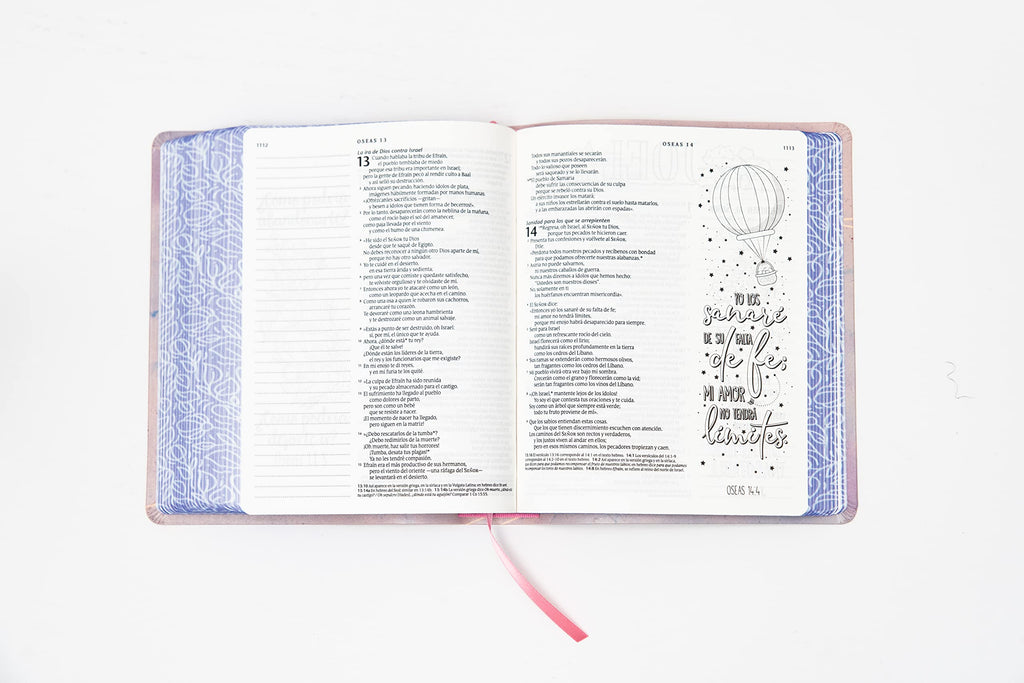 1112
OSEAS 13
La ira de Dios contra Israel
13 Cuando hablaba la tribu de Efraín,
el pueblo temblaba de miedo
porque esa tribu era importante en Israel;
pero la gente de Efraín pecó al rendir culto a Baal
y así selló su destrucción.
2 Ahora siguen pecando, haciendo ídolos de plata,
imágenes hábilmente formadas por manos humanas.
«¡Ofrézcanles sacrificios —gritan—
y besen a ídolos que tienen forma de becerros!».
3 Por lo tanto, desaparecerán como la neblina de la mañana,
como el rocío bajo el sol del amanecer,
como paja llevada por el viento
y como el humo de una chimenea.
4 «He sido el SEÑOR tu Dios
desde que te saqué de Egipto.
No debes reconocer a ningún otro Dios aparte de mí,
porque no hay otro salvador.
5 Yo te cuidé en el desierto,
en esa tierra árida y sedienta.
6 pero una vez que comiste y quedaste satisfecho,
te volviste orgulloso y te olvidaste de mí.
7 Entonces ahora yo te atacaré como un león,
como un leopardo que acecha en el camino.
8 Como una osa a quien le robaron sus cachorros,
arrancaré tu corazón.
Te devoraré como una leona hambrienta
y te destrozaré como un animal salvaje.
9 »Estás a punto de ser destruido, oh Israel;
sí, por mí, el único que te ayuda.
10 Ahora, ¿dónde está tu rey?
¡Que él te salve!
¿Dónde están los líderes de la tierra,
el rey y los funcionarios que me exigiste?
11 En mi enojo te di reyes,
y en mi furia te los quité.
12 »La culpa de Efraín ha sido reunida
y su pecado almacenado para el castigo.
13 El sufrimiento ha llegado al pueblo
como dolores de parto,
pero son como un bebé
que se resiste a nacer.
¡El momento de nacer ha llegado,
pero siguen en la matriz!
14 »¿Debo rescatarlos de la tumba*?
¿Debo redimirlos de la muerte?
¡Oh muerte, haz salir tus horrores!
¡Tumba, desata tus plagas!*
Ya no les tendré compasión.
15 Efraín era el más productivo de sus hermanos,
pero el viento del oriente —una ráfaga del SEÑOR—
se levantará en el desierto.
OSEAS 14
1113
Todos sus manantiales se secarán
y todos sus pozos desaparecerán.
Todo lo valioso que poseen
será saqueado y se lo llevarán.
16 *El pueblo de Samaria
debe sufrir las consecuencias de su culpa
porque se rebeló contra su Dios.
Un ejército invasor los matará;
a sus niños los estrellarán contra el suelo hasta matarlos,
y a las embarazadas las abrirán con espadas».
Sanidad para los que se arrepienten
14 *Regresa, oh Israel, al SEÑOR tu Dios,
porque tus pecados te hicieron caer.
2 Presenta tus confesiones y vuélvete al SEÑOR.
Dile:
«Perdona todos nuestros pecados y recíbenos con bondad
para que podamos ofrecerte nuestras alabanzas.*
3 Asiria no puede salvarnos,
ni nuestros caballos de guerra.
Nunca más diremos a ídolos que hemos hecho:
"Ustedes son nuestros dioses".
No, solamente en ti
los huérfanos encuentran misericordia».
4 El SEÑOR dice:
«Entonces yo los sanaré de su falta de fe;
mi amor no tendrá límites,
porque mi enojo habrá desaparecido para siempre.
5 Seré para Israel
como un refrescante rocío del cielo.
Israel florecerá como el lirio;
hundirá sus raíces profundamente en la tierra
como los cedros del Líbano.
6 Sus ramas se extenderán como hermosos olivos,
tan fragantes como los cedros del Líbano.
7 Mi pueblo vivirá otra vez bajo mi sombra.
Crecerán como el grano y florecerán como la vid;
serán tan fragantes como los vinos del Líbano.
8 »¡Oh Israel,* mantente lejos de los ídolos!
Yo soy el que contesta tus oraciones y te cuida.
Soy como un árbol que siempre está verde;
todo tu fruto proviene de mí».
9 Que los sabios entiendan estas cosas.
Que los que tienen discernimiento escuchen con atención.
Los caminos del SEÑOR son rectos y verdaderos,
y los justos viven al andar en ellos;
pero en esos mismos caminos, los pecadores tropiezan y caen.
YO LOS
sanaré
DE SU FALTA
de fe;
MI AMOR
NO TENDRÁ
límites.
OSEAS 14:4